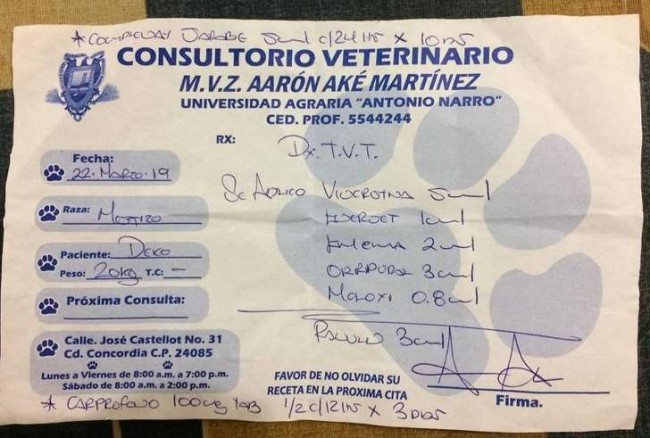 * COMPLEWAY JARABE 5ml c/24 Hrs X 10 Dias
CONSULTORIO VETERINARIO
M.V.Z. AARÓN AKÉ MARTÍNEZ
UNIVERSIDAD AGRARIA "ANTONIO NARRO"
CED. PROF. 5544244
RX:
Dx. T.V.T.
Fecha:
22. Marzo. 19
Raza: Mestizo
Paciente: Deko
Peso: 20kg T.C: -
Próxima Consulta:
Calle. José Castellot No. 31
Cd. Concordia C.P. 24085
Lunes a Viernes de 8:00 a.m. a 7:00 p.m.
Sábado de 8:00 a.m. a 2:00 p.m.
Se Aplico Vincristina 5ml
1ml
2ml
3ml
Meloxi 0.8ml
3ml
FAVOR DE NO OLVIDAR SU
RECETA EN LA PROXIMA CITA
Firma.
* CARPROFENO 100mg tab 1/2 c/12 Hrs X 3 Dias